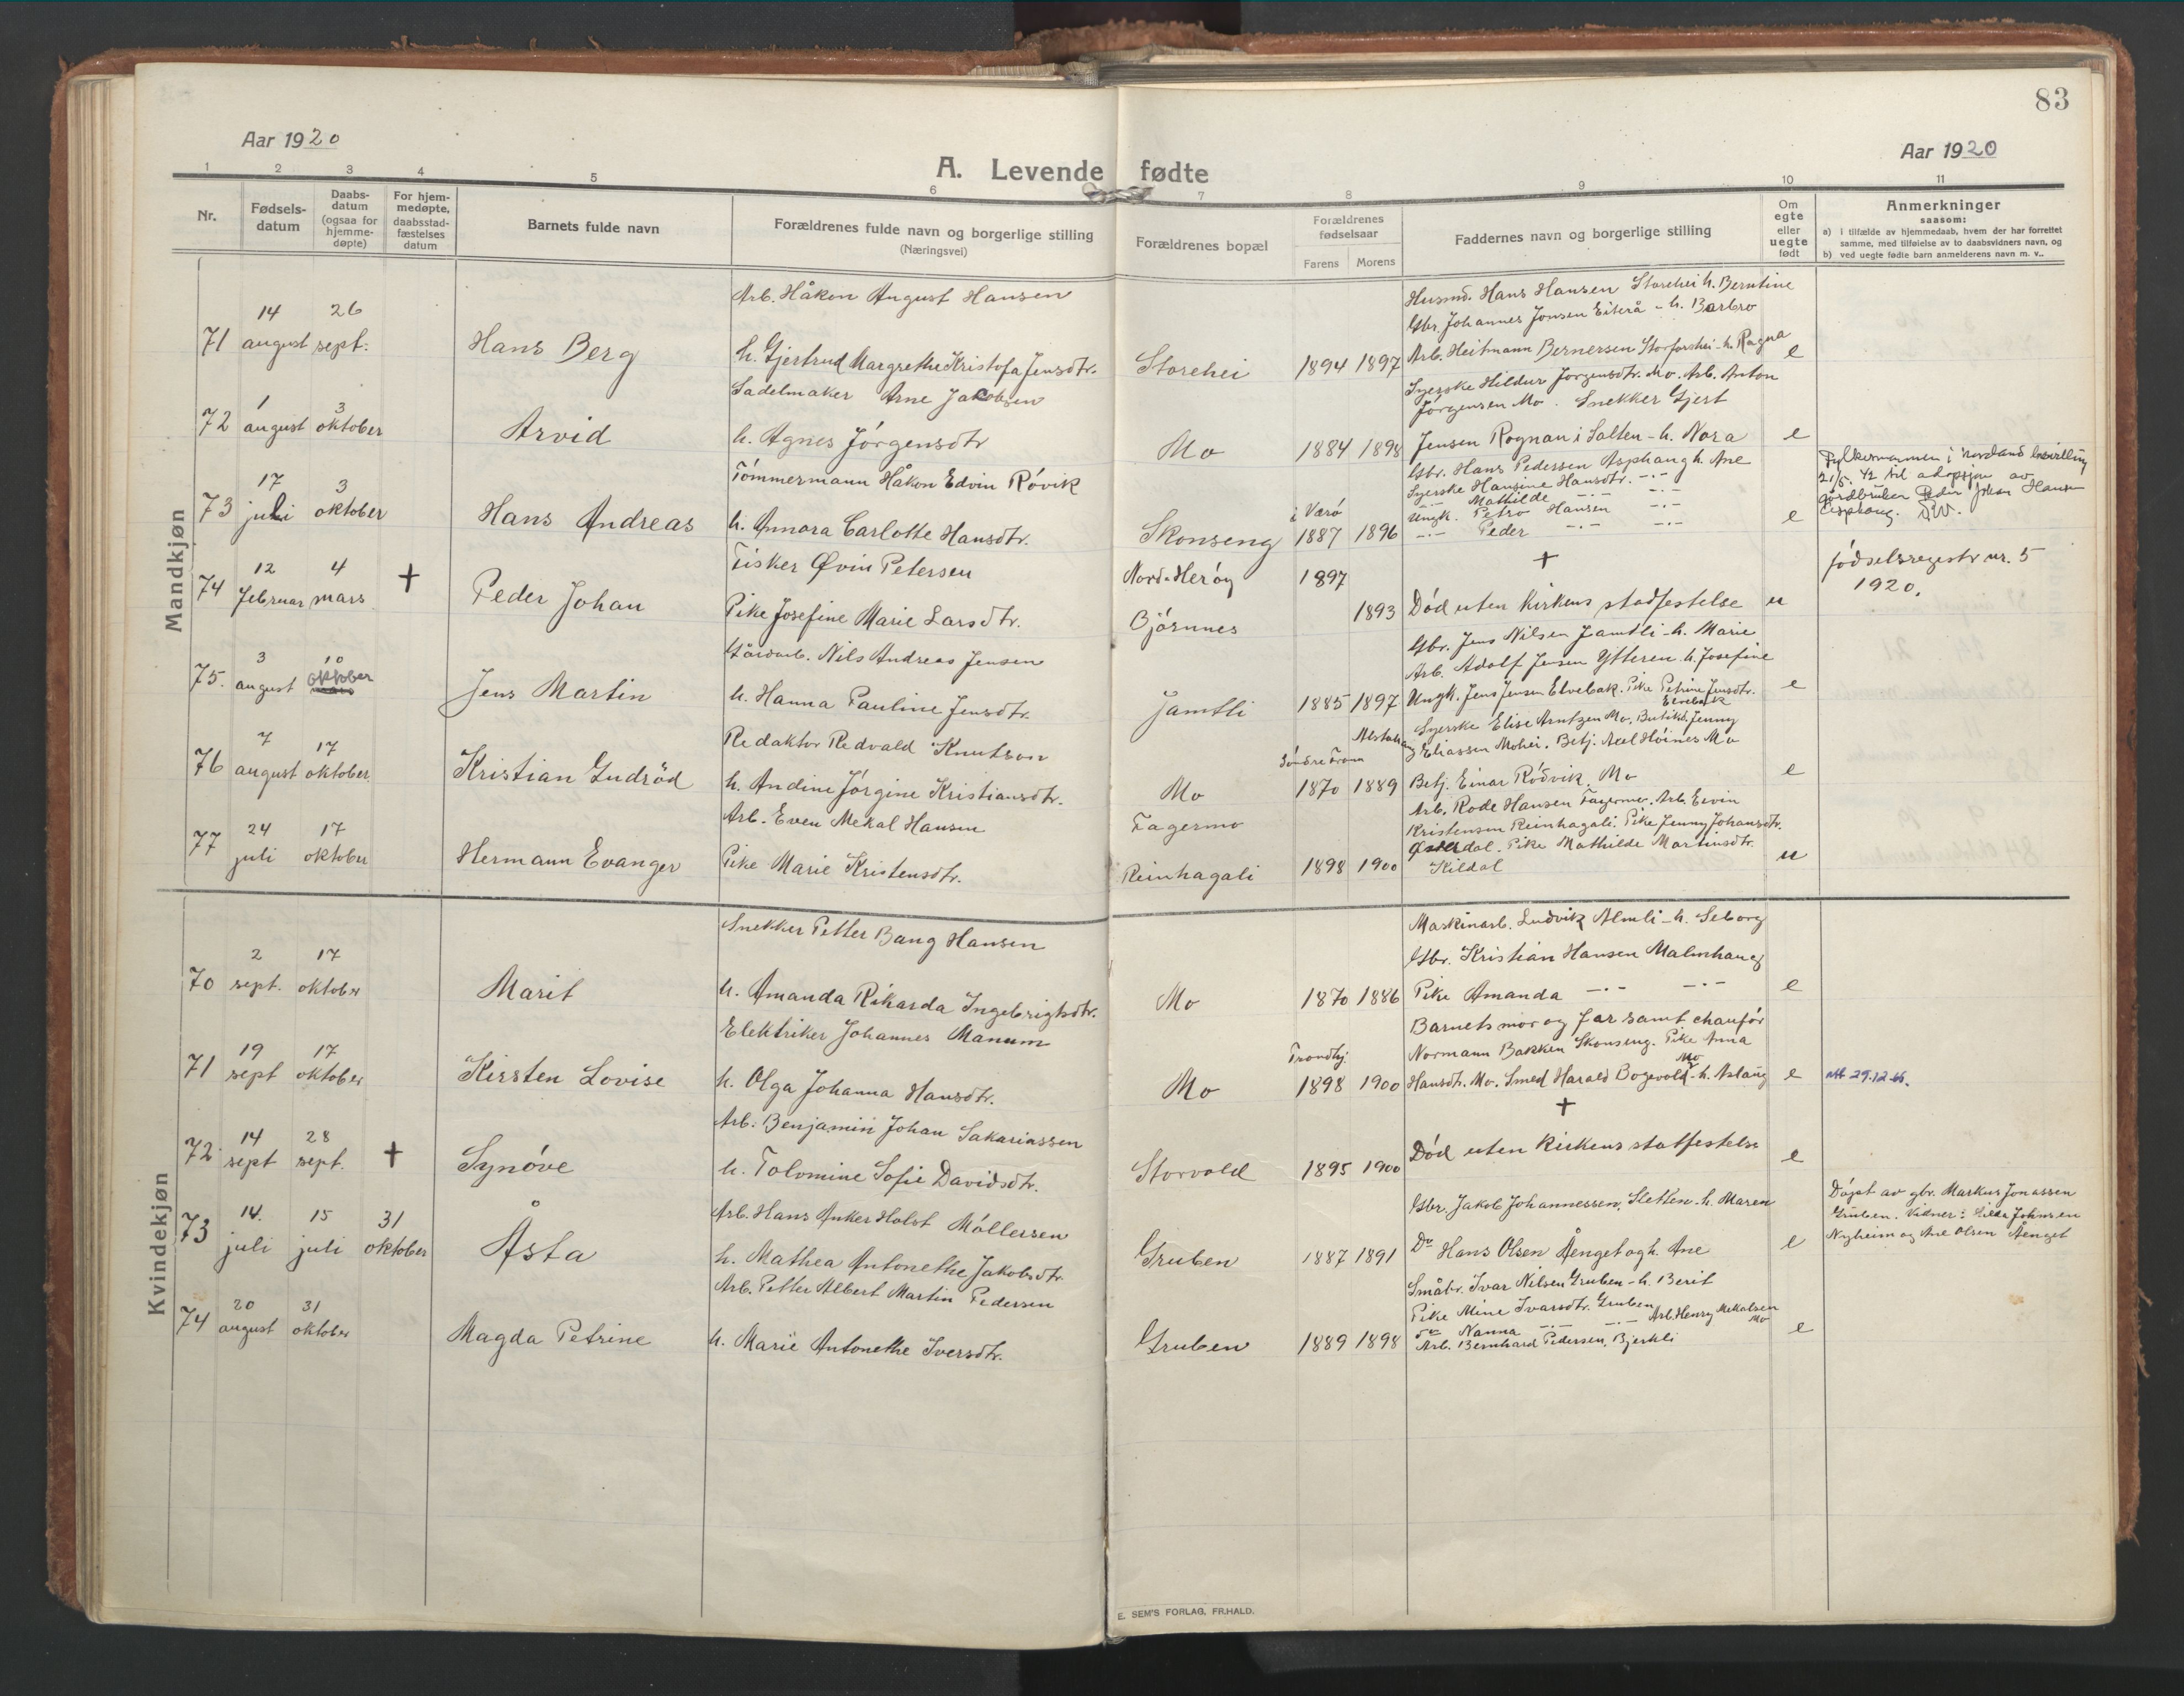 83
Aar 1920
Aar 1920
A. Levende fødte
1 2 3 4 5 6 7 8 9 10 11
Nr.
Fødsels-
datum
Daabs-
datum
(ogsaa for
hjemme-
døpte)
For hjem-
medøpte,
daabsstad-
fæstelses
datum
Barnets fulde navn
Forældrenes fulde navn og borgerlige stilling
(Næringsvei)
Forældrenes bopæl
Forældrenes
fødselsaar
Farens Morens
Faddernes navn og borgerlige stilling
Om
egte
eller
uegte
født
Anmerkninger
saasom:
a) i tilfælde av hjemmedaab, hvem der har forrettet
samme, med tilføielse av to daabsvidners navn, og
b) ved uegte fødte barn anmelderens navn m. v..
Mandkjøn
71 14 august 26 sept. Hans Berg
Arb. Håkon August Hansen
h. Gjertrud Margrethe Kristofa Jensdtr.
Storehei 1894 1897
Husmd. Hans Hansen Storehei h. Berntine
Gbr. Johannes Jonsen Eiterå - h. Barbro
Arb. Heitmann Bernersen Storforshei - h. Ragna
e
72 1 august 3 oktober Arvid
Sadelmaker Arne Jakobsen
h. Agnes Jörgensdtr
Mo 1884 1898
Syerske Hildur Jörgensdtr. Mo. Arb. Anton
Jörgensen Mo. Snekker Gjert
Jensen Rognan i Salten - h. Nora
e
73 17 juli 3 oktober Hans Andreas
Tömmermann Håkon Edvin Rövik
h. Annora Carlotte Hansdtr.
Skonseng i Værö 1887 1896
Gbr. Hans Pedersen Asphaug h. Ane
Syerske Hansine Hansdtr. -.-
-.- Mathilde -.- -.-
Ungk. Petro Hansen -.-
-.- Peder -.- -.-
e
Fylkesmannen i Nordland bevilling
21/5. 42 til adopsjon av
gårdbruker Peder Johan Hansen
Asphaug.
74 12 februar 4 mars + Peder Johan
Fisker Øvin Petersen
Pike Josefine Marie Larsdtr.
Nord-Heröy 1897
Björnnes 1893
+
Död uten kirkens stadfestelse
u
födselsregistr nr. 5
1920.
75. 3 august 10 oktober Jens Martin
Gårdarb. Nils Andreas Jensen
h. Hanna Pauline Jensdtr.
Jamtli 1885 1897
Gbr. Jens Nilsen Jamtli - h. Marie
Arb. Adolf Jensen Ytteren h. Josefine
Ungk. Jens Jensen Elvebak. Pike Petrine Jensdtr.
Elvebak
e
76 7 august 17 oktober Kristian Gudröd
Redaktör Redvald Knutson
h. Andine Jörgine Kristiansdtr.
Mo 1870 1889
Syerske Elise Arntzen Mo, Butikd. Jenny
Eliassen Mohei. Betj. Axel Höines Mo
Betj. Einar Rödvik Mo
e
77 24 juli 17 oktober Hermann Evanger
Arb. Even Mekal Hansen
Pike Marie Kristensdtr.
Fagermo
Reinhagali 1898 1900
Arb. Rode Hansen Fagermo. Arb. Eivin
Kristensen Reinhagali. Pike Jenny Johansdtr.
Østerdal. Pike Mathilde Martinsdtr.
Kildal
u
Kvindekjøn
70 2 sept. 17 oktober Marit
Snekker Petter Bang Hansen
h. Amanda Rikarda Ingebrigtsdtr.
Mo 1870 1886
Maskinarb. Ludvik Almli - h. Seborg
Gbr. Kristian Hansen Malmhaug
Pike Amanda -.- -.-
e
71 19 sept 17 oktober Kirsten Lovise
Elektriker Johannes Manum
h. Olga Johanna Hansdtr.
Mo Trondhj. 1898 1900
Barnets mor og far samt chauför
Normann Bakken Skonseng. Pike Anna
Hansdtr. Mo. Smed Harald Bogevold Mo - h. Aslaug
e
att 29.12.66.
72 14 sept 28 sept. + Synöve
Arb. Benjamin Johan Sakariassen
h. Tolomine Sofie Davidsdtr.
Storvold 1895 1900
+
Död uten kirkens statfestelse
e
73 14. juli 15 juli 31 oktober Åsta
Arb. Hans Anker Holst Möllersen
h. Mathea Antonethe Jakobsdtr.
Gruben 1887 1891
Gbr. Jakob Johannessen, Sletten - h. Maren
Do Hans Olsen Åenget og h. Ane
e
Döpt av gbr. Markus Jonassen
Gruben. Vidner: Hilda Johnsen
Nyheim og Ane Olsen Åenget
74 20 august 31 oktober Magda Petrine
Arb. Petter Albert Martin Pedersen
h. Marie Antonethe Iversdtr.
Gruben 1889 1898
Småbr. Ivar Nilsen Gruben - h. Berit
Pike Mine Ivarsdtr. Gruben Arb. Henry Mekalsen
Do Nanna -.- -.- Mo
Arb. Bernhard Pedersen, Bjerkli
e
E. SEM'S FORLAG, FR.HALD.